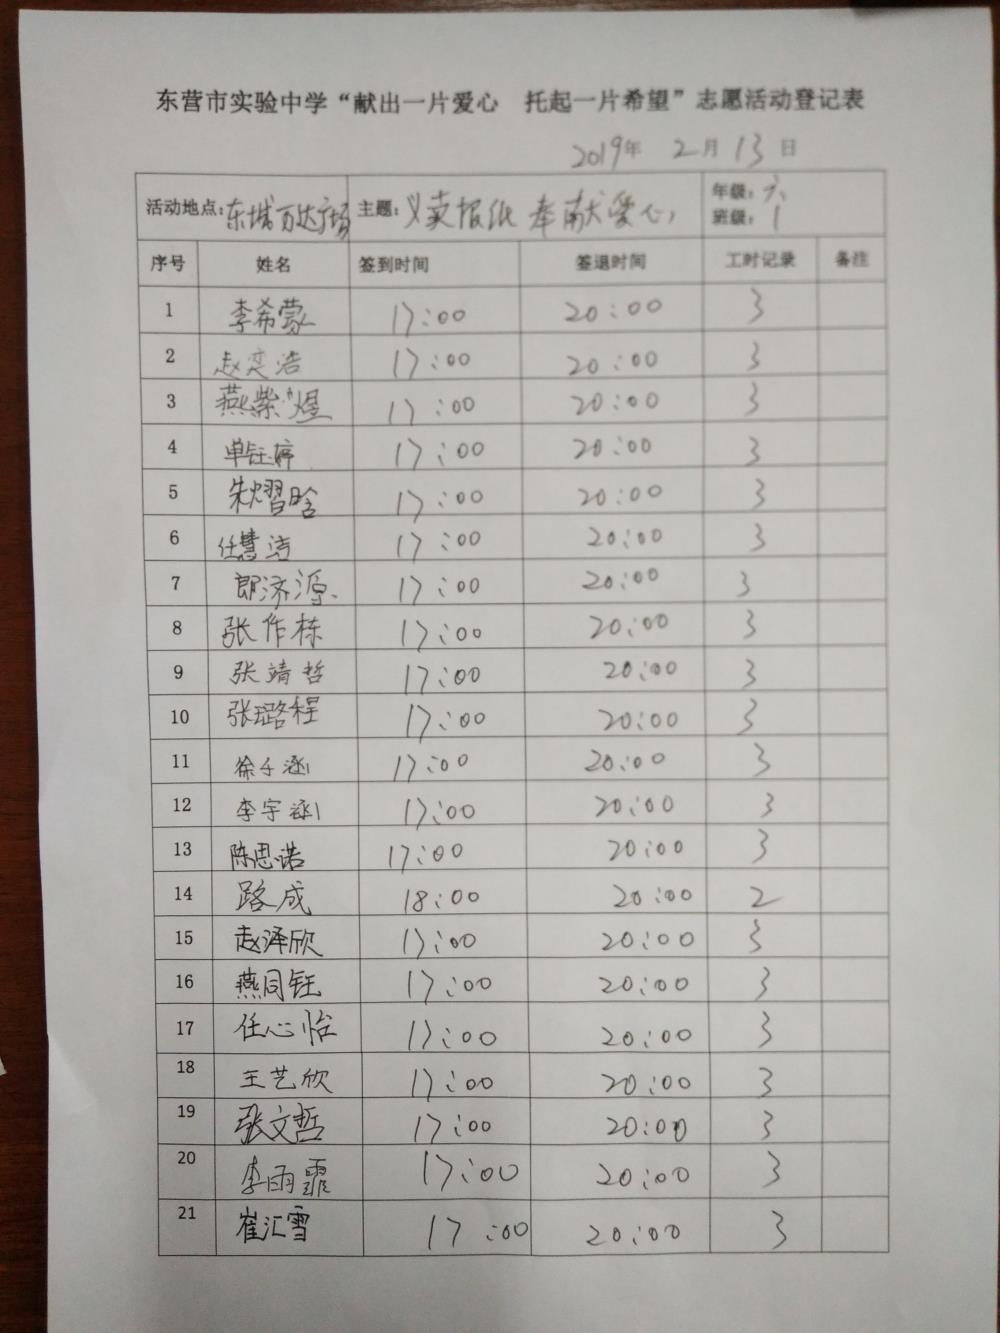 东营市实验中学“献出一片爱心 托起一片希望”志愿活动登记表
2019年 2月13日
活动地点:东城万达广场 主题:义卖报纸 奉献爱心 年级:六
班级:1
序号 姓名 签到时间 签退时间 工时记录 备注
1 李希蒙 17:00 20:00 3
2 赵奕浩 17:00 20:00 3
3 燕紫煜 17:00 20:00 3
4 单钰婷 17:00 20:00 3
5 朱熠晗 17:00 20:00 3
6 任慧洁 17:00 20:00 3
7 郎济源 17:00 20:00 3
8 张作栋 17:00 20:00 3
9 张靖哲 17:00 20:00 3
10 张璐程 17:00 20:00 3
11 徐子涵 17:00 20:00 3
12 李宇涵 17:00 20:00 3
13 陈思诺 17:00 20:00 3
14 路成 18:00 20:00 2
15 赵泽欣 17:00 20:00 3
16 燕同钰 17:00 20:00 3
17 任心怡 17:00 20:00 3
18 王艺欣 17:00 20:00 3
19 张文哲 17:00 20:00 3
20 李雨霏 17:00 20:00 3
21 崔汇雪 17:00 20:00 3